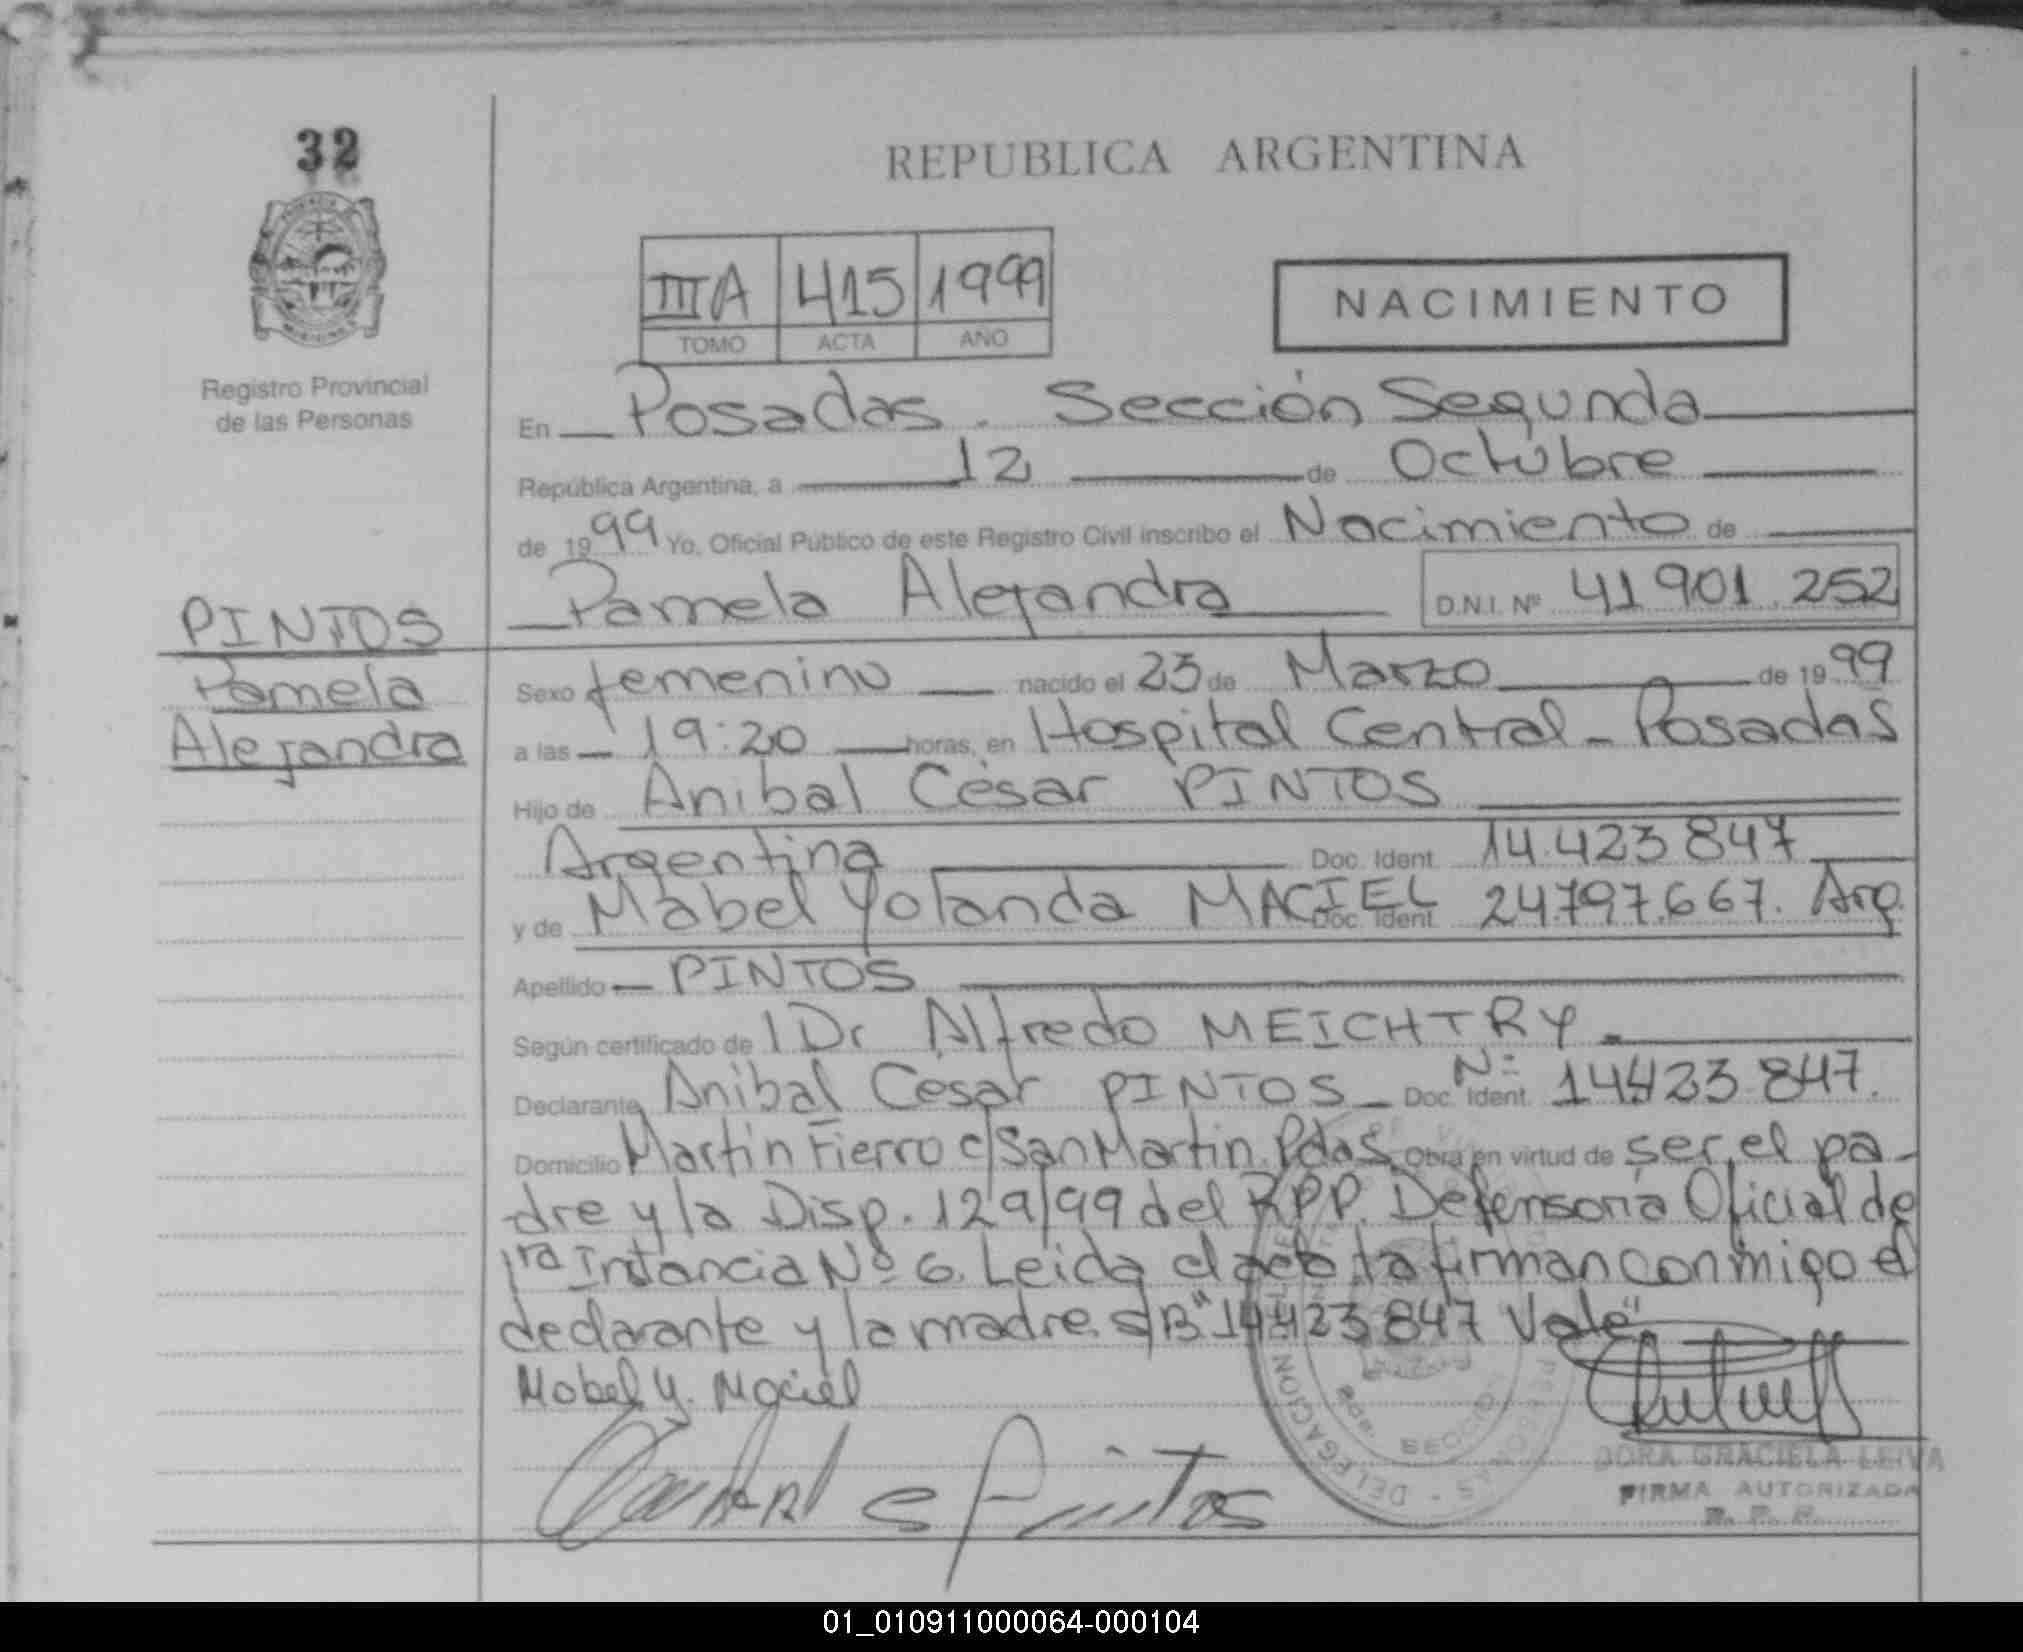 32
REPUBLICA ARGENTINA
IIIA 415 1999
TOMO ACTA AÑO
NACIMIENTO
Registro Provincial
de las Personas
En Posadas. Sección Segunda
República Argentina, a 12 de Octubre
de 1999 Yo, Oficial Público de este Registro Civil inscribo el Nacimiento de
Pamela Alejandra D.N.I. Nº 41901.252
PINTOS
Pamela
Alejandra
Sexo femenino nacido el 23 de Marzo de 1999
a las 19:20 horas, en Hospital Central - Posadas
Hijo de Anibal César PINTOS
Argentina Doc. Ident. 14.423847
y de Mabel Yolanda MACIEL Doc. Ident. 24.797.667. Arg.
Apellido PINTOS
Según certificado de Dr Alfredo MEICHTRY
Declarante Anibal Cesar PINTOS Doc. Ident. Nº 14423.847.
Domicilio Martin Fierro c/San Martin. Pdas. Obra en virtud de ser el pa-
dre y la Disp. 129/99 del RPP. Defensoria Oficial de
1ra Instancia Nº 6. Leida el acta la firman conmigo el
declarante y la madre. S/B "14423847 Vale"
Mabel Y. Maciel
Pintos
DELEGACION
SECCION
DORA GRACIELA LEIVA
FIRMA AUTORIZADA
R. P. P.
01_010911000064-000104